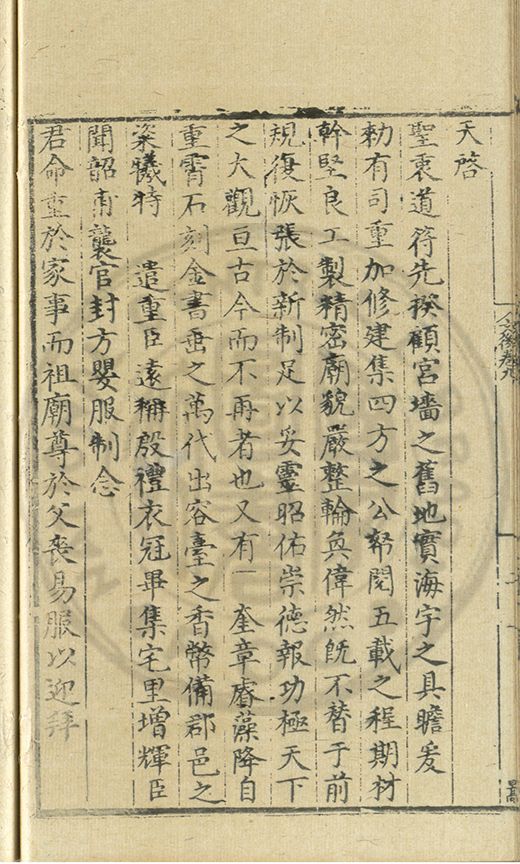 天啓
聖衷道符先揆顧宮墻之舊地實海宇之具瞻爰
勑有司重加修建集四方之公帑閱五載之程期材
幹堅良工製精密廟貌嚴整輪奐偉然旣不替于前
規復恢張於新制足以妥靈昭佑崇德報功極天下
之大觀亘古今而不再者也又有 奎章睿藻降自
重霄石刻金書垂之萬代出容臺之香幣備郡邑之
粢犧特 遣重臣遠稱殷禮衣冠畢集宅里增輝臣
聞韶甫襲官封方嬰服制念
君命重於家事而祖廟尊於父喪易服以迎拜